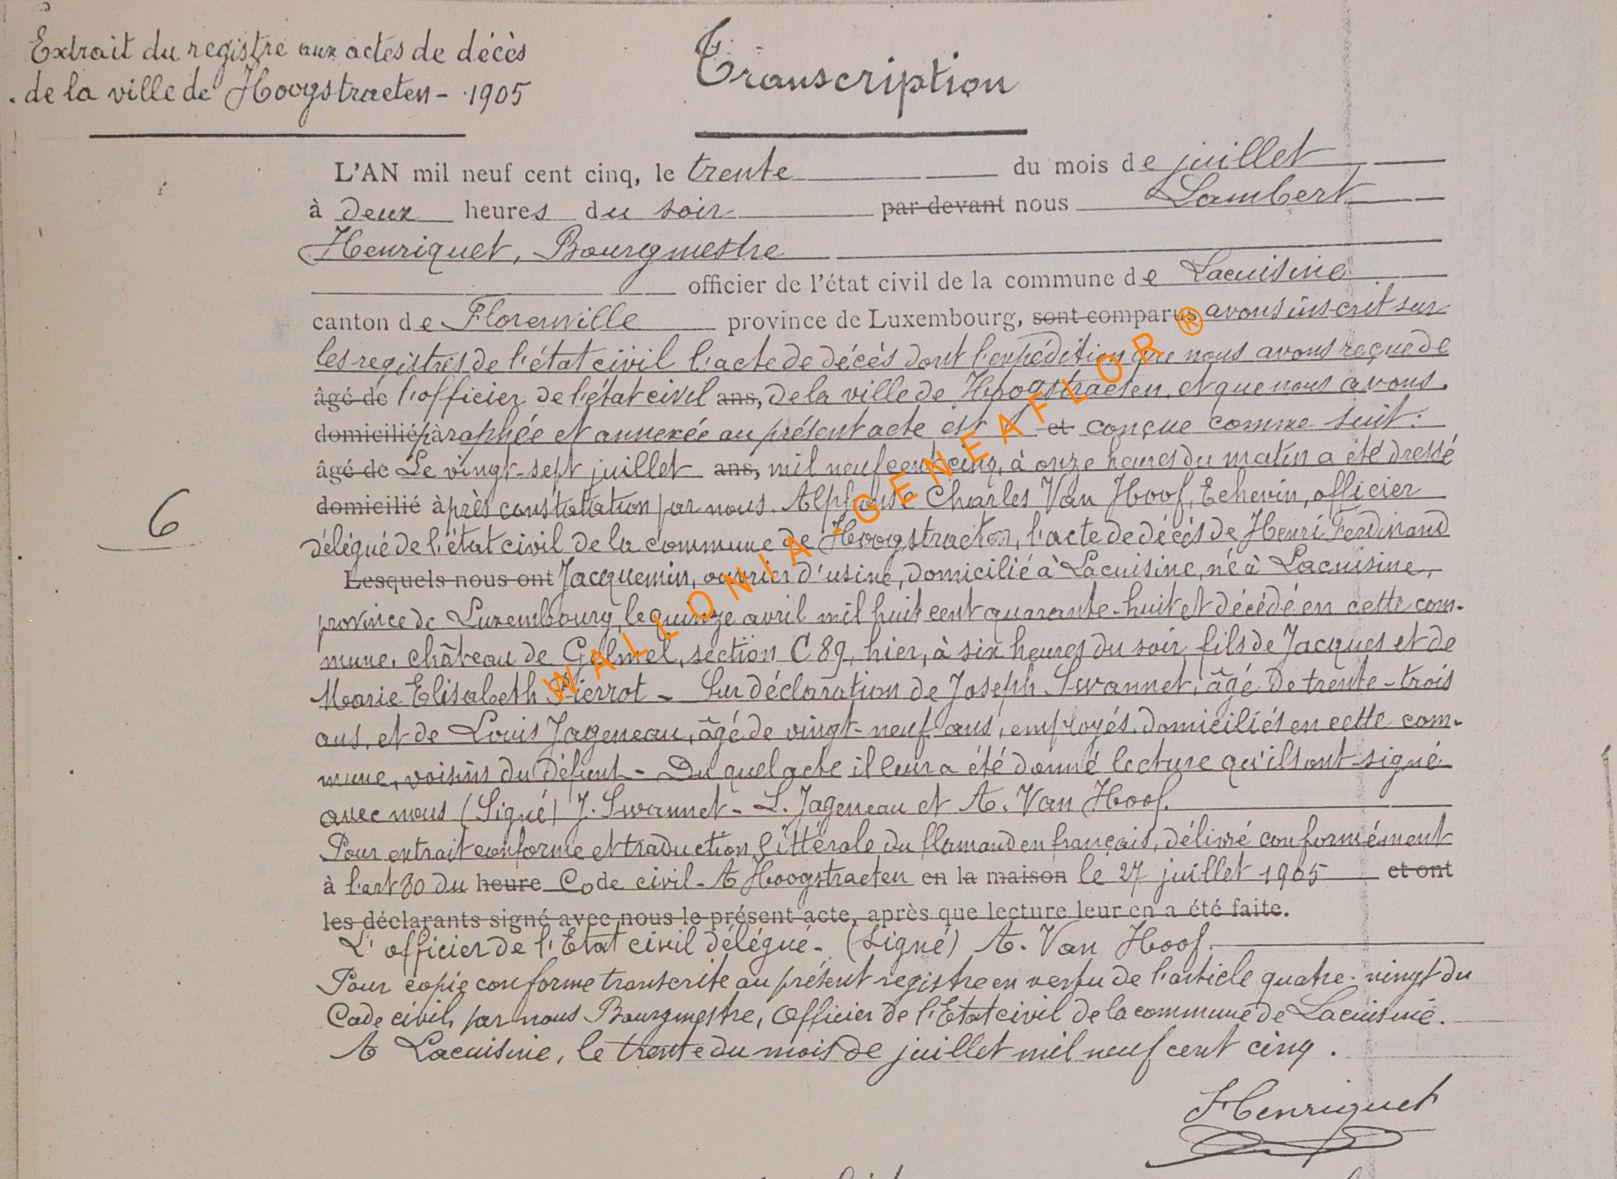 Extrait du registre aux actes de décès
de la ville de Hoogstraeten - 1905
Transcription
L'AN mil neuf cent cinq, le trente du mois de juillet
à deux heures du soir par devant nous Lambert
Henriquet, Bourgmestre
officier de l'état civil de la commune de Lacuisine
canton de Florenville province de Luxembourg, sont comparus avons inscrit sur
les registres de l'état civil l'acte de décès dont l'expédition que nous avons reçue de
âgé de l'officier de l'état civil ans, de la ville de Hoogstraeten et que nous avons
domicilié paraphée et annexée au présent acte est et conçue comme suit :
âgé de Le vingt-sept juillet ans, mil neuf cent cinq, à onze heures du matin a été dressé
domicilié après constatation par nous Alphonse Charles Van Hoof, Echevin, officier
6
délégué de l'état civil de la commune de Hoogstraeten, l'acte de décès de Henri Ferdinand
Lesquels nous ont Jacquemin, ouvrier d'usine, domicilié à Lacuisine, né à Lacuisine,
province de Luxembourg, le quinze avril mil huit cent quarante-huit et décédé en cette com-
mune, château de Gelmel, section C 89, hier, à six heures du soir, fils de Jacques et de
Marie Elisabeth Pierrot - Sur déclaration de Joseph Swannet, âgé de trente-trois
ans, et de Louis Jageneau, âgé de vingt-neuf ans, employés, domiciliés en cette com-
mune, voisins du défunt - Du quel acte il leur a été donné lecture qu'ils ont signé
avec nous (Signé) J. Swannet - L. Jageneau et A. Van Hoof.
Pour extrait conforme et traduction littérale du flamand en français, délivré conformément
à l'art 80 du heure Code civil - A Hoogstraeten en la maison le 27 juillet 1905 et ont
les déclarants signé avec nous le présent acte, après que lecture leur en a été faite.
L'officier de l'Etat civil délégué - (Signé) A. Van Hoof.
Pour copie conforme transcrite au présent registre en vertu de l'article quatre-vingt du
Code civil, par nous Bourgmestre, Officier de l'Etat civil de la commune de Lacuisine.
A Lacuisine, le trente du mois de juillet mil neuf cent cinq.
Henriquet
WALLONIA-GENEAFLOR ®